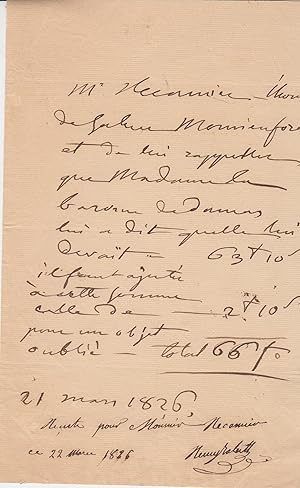 Mr Recamier
de saluer Monsieur
et de lui rappeller
que Madame la
baronne de damas
lui a dit quelle lui
devait – 63# 10s
il faut ajouter
à cette somme
celle de — 2# 10s
pour un objet
oublié – total 66 fr
21 mars 1826
pour Monsieur Recamier
ce 22 Mars 1826